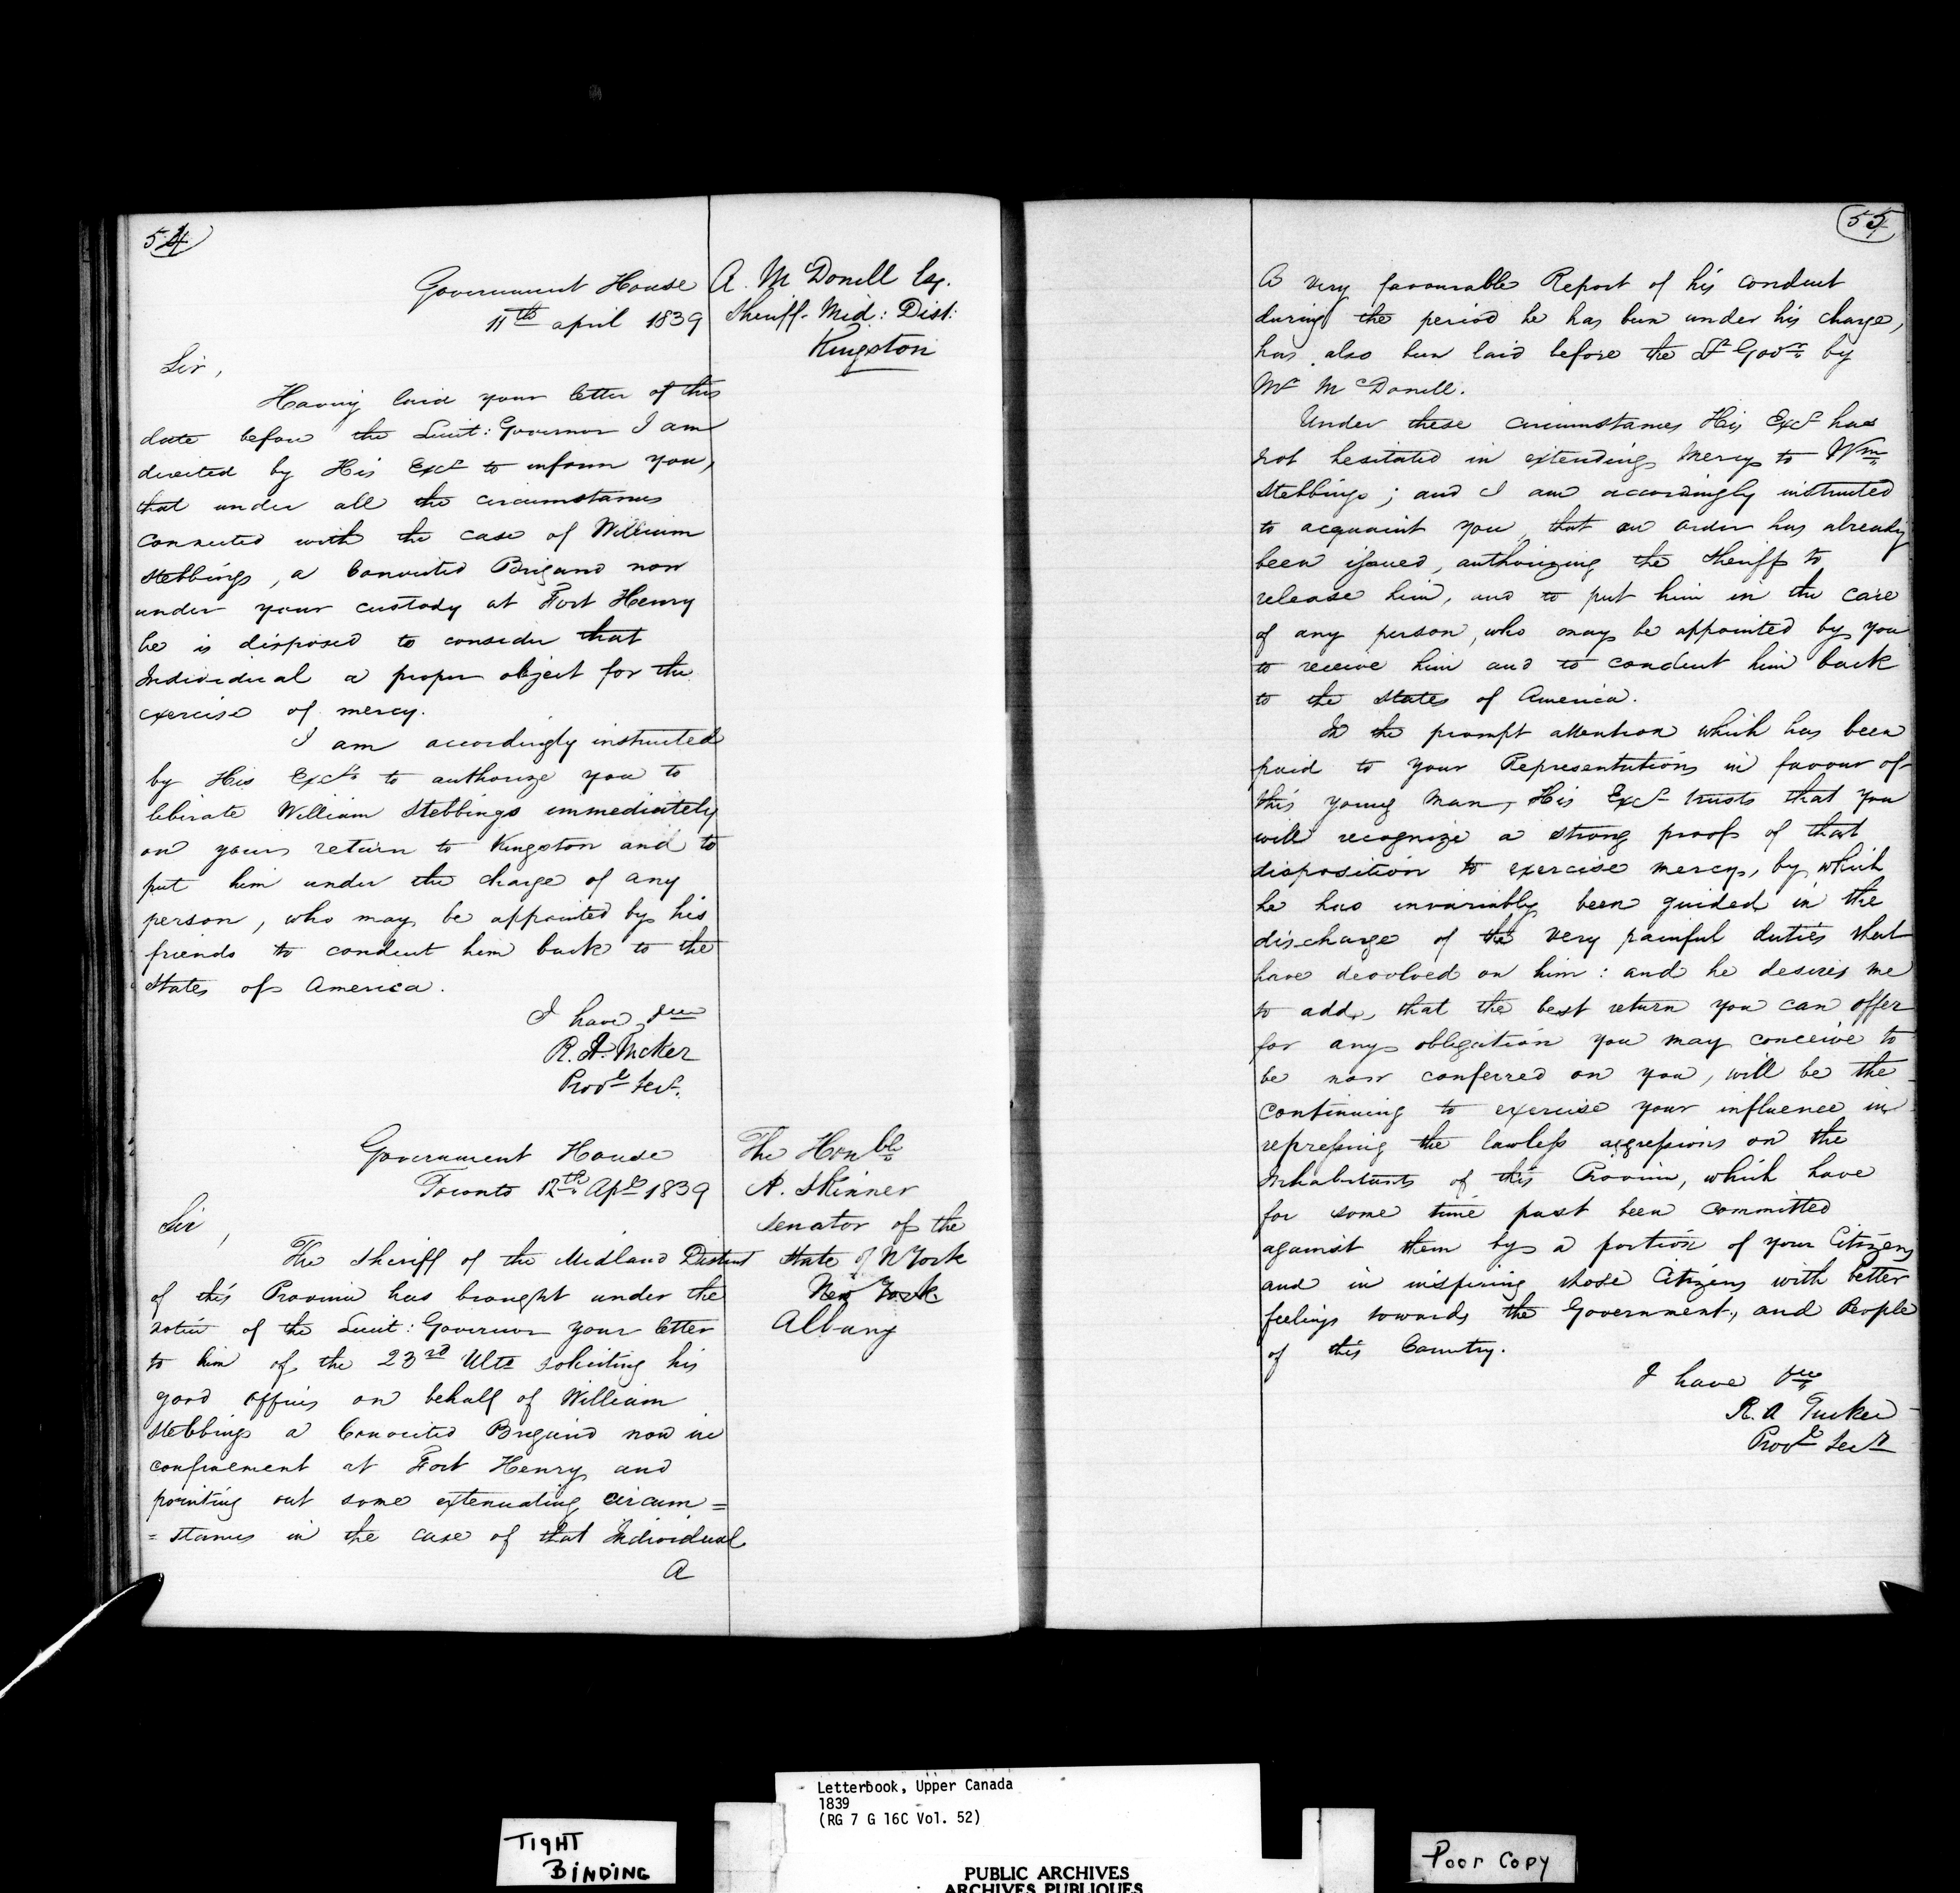 54
Government House
11th april 1839
A. McDonell Esq.
Sheriff Mid: Dist:
Kingston
Sir,
Having laid your letter of this
date before the Lieut: Governor I am
directed by His Excy to inform you,
that under all the circumstances
connected with the case of William
Stebbings, a Convicted Brigand now
under your custody at Fort Henry
he is disposed to consider that
Individual a proper object for the
exercise of mercy.
I am accordingly instructed
by His Excy to authorize you to
liberate William Stebbings immediately
on your return to Kingston and to
put him under the charge of any
person, who may be appointed by his
friends to conduct him back to the
States of America.
I have &c
R. A. Tucker
Provl Secy.
Government House
Toronto 12th Apl 1839
The Honble
A. Skinner
Senator of the
State of N York
New York
Albany
Sir,
The Sheriff of the Midland District
of this Province has brought under the
notice of the Lieut: Governor your letter
to him of the 23rd Ulto soliciting his
good offices on behalf of William
Stebbings a Convicted Brigand now in
confinement at Fort Henry and
pointing out some extenuating circum=
=stances in the case of that Individual
A
55
A very favourable Report of his conduct
during the period he has been under his charge,
has also been laid before the Lt Govr by
Mr McDonell.
Under these circumstances His Excy has
not hesitated in extending Mercy to Wm
Stebbings; and I am accordingly instructed
to acquaint you, that an order has already
been issued, authorizing the Sheriff to
release him, and to put him in the care
of any person, who may be appointed by you
to receive him and to conduct him back
to the States of America.
In the prompt attention which has been
paid to your Representations in favour of
this young man, His Excy trusts that you
will recognize a strong proof of that
disposition to exercise mercy, by which
he has invariably been guided in the
discharge of the very painful duties that
have devolved on him: and he desires me
to add, that the best return you can offer
for any obligation you may conceive to
be now conferred on you, will be the
continuing to exercise your influence in
repressing the lawless aggressions on the
Inhabitants of this Province, which have
for some time past been committed
against them by a portion of your Citizens
and in inspiring those Citizens with better
feelings towards the Government, and People
of this Country.
I have &c
R. A Tucker
Provl Secy
Letterbook, Upper Canada
1839
(RG 7 G 16C Vol. 52)
TIGHT
BINDING
Poor Copy
PUBLIC ARCHIVES
ARCHIVES PUBLIQUES